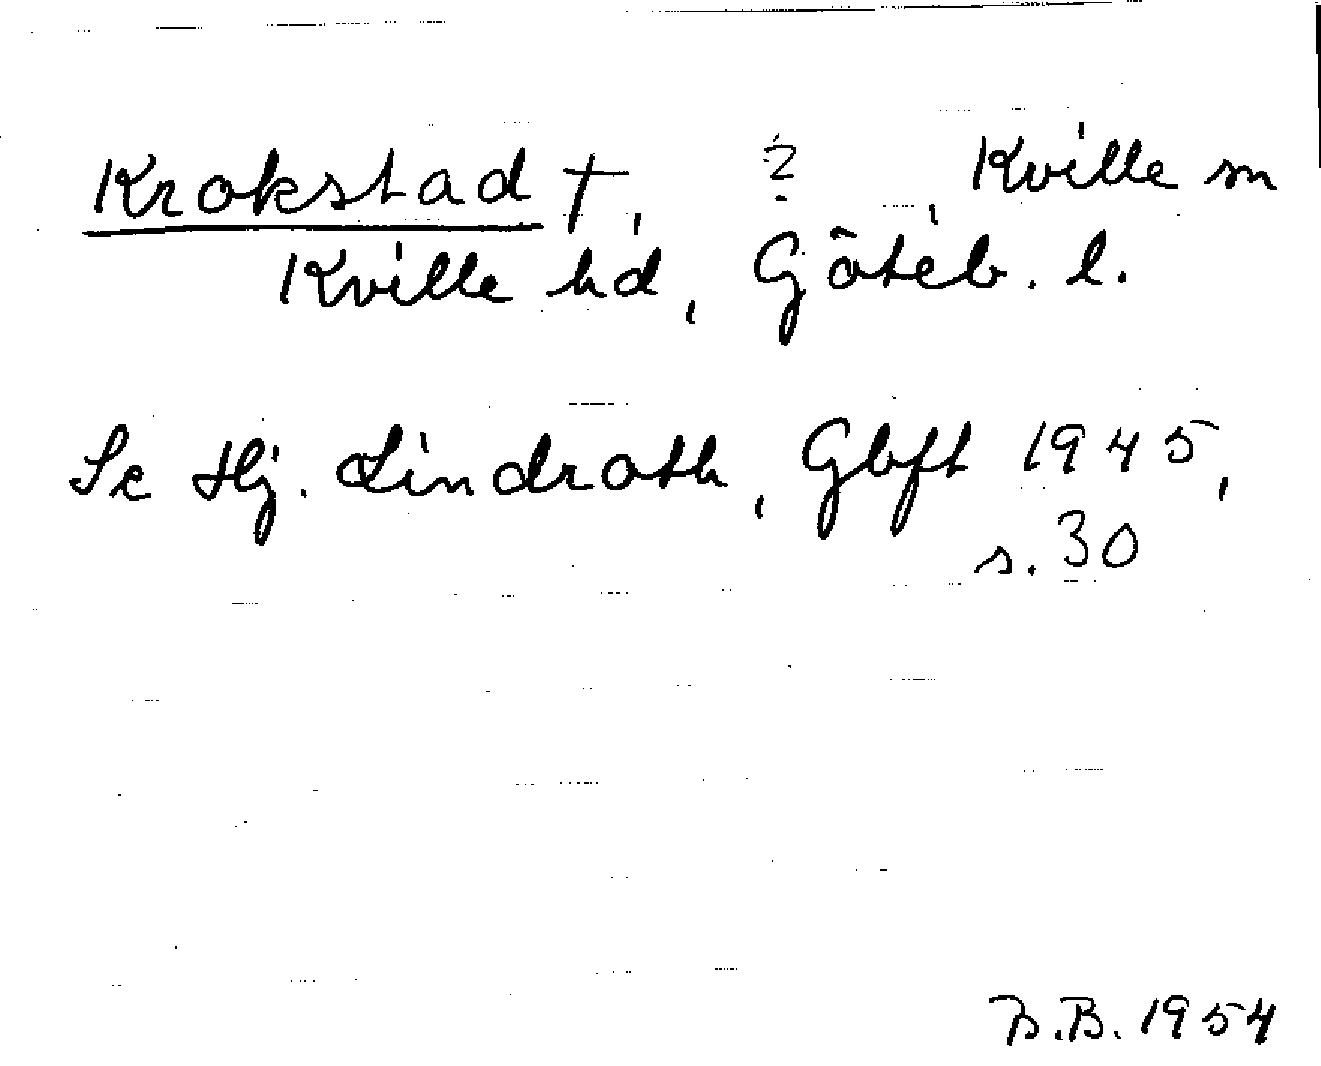 Krokstad †, ?, Kville sn
Kville hd, Göteb. l.
Se Hj. Lindroth, Gbft 1945,
s. 30
B.B. 1954